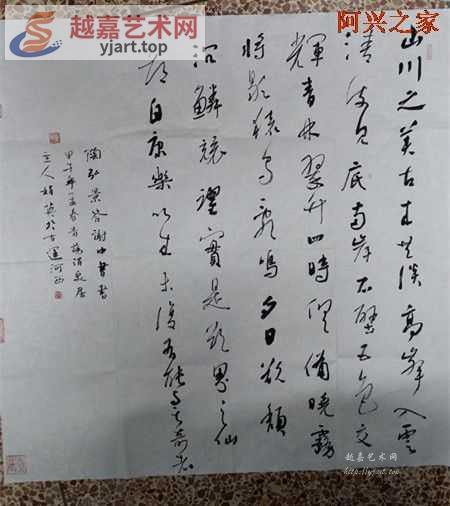 越嘉艺术网
yjart.top
阿兴之家
山川之美古来共谈高峰入云
清流见底两岸石壁五色交
辉青林翠竹四时俱备晓雾
将歇猿鸟乱鸣夕日欲颓
沉鳞竞跃实是欲界之仙
都自康乐以来未复有能与其奇者
陶弘景答谢中书书
甲午年孟春青
主人 於古运河西
越嘉艺术网
http://yjart.top